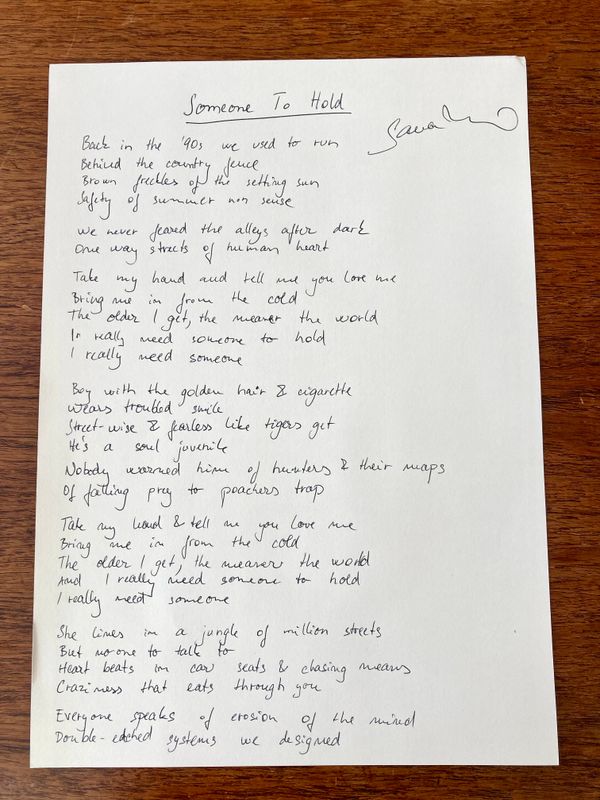 Someone To Hold
Back in the '90s we used to run
Behind the country fence
Brown freckles of the setting sun
Safety of summer non sense
We never feared the alleys after dark
One way streets of human heart
Take my hand and tell me you love me
Bring me in from the cold
The older I get, the meaner the world
I really need someone to hold
I really need someone
Boy with the golden hair & cigarette
Wears troubled smile
Street-wise & fearless like tigers get
He's a soul juvenile
Nobody warned him of hunters & their maps
Of falling prey to poachers trap
Take my hand & tell me you love me
Bring me in from the cold
The older I get, the meaner the world
And I really need someone to hold
I really need someone
She lives in a jungle of million streets
But no one to talk to
Heart beats in car seats & chasing means
Craziness that eats through you
Everyone speaks of erosion of the mind
Double-edged systems we designed